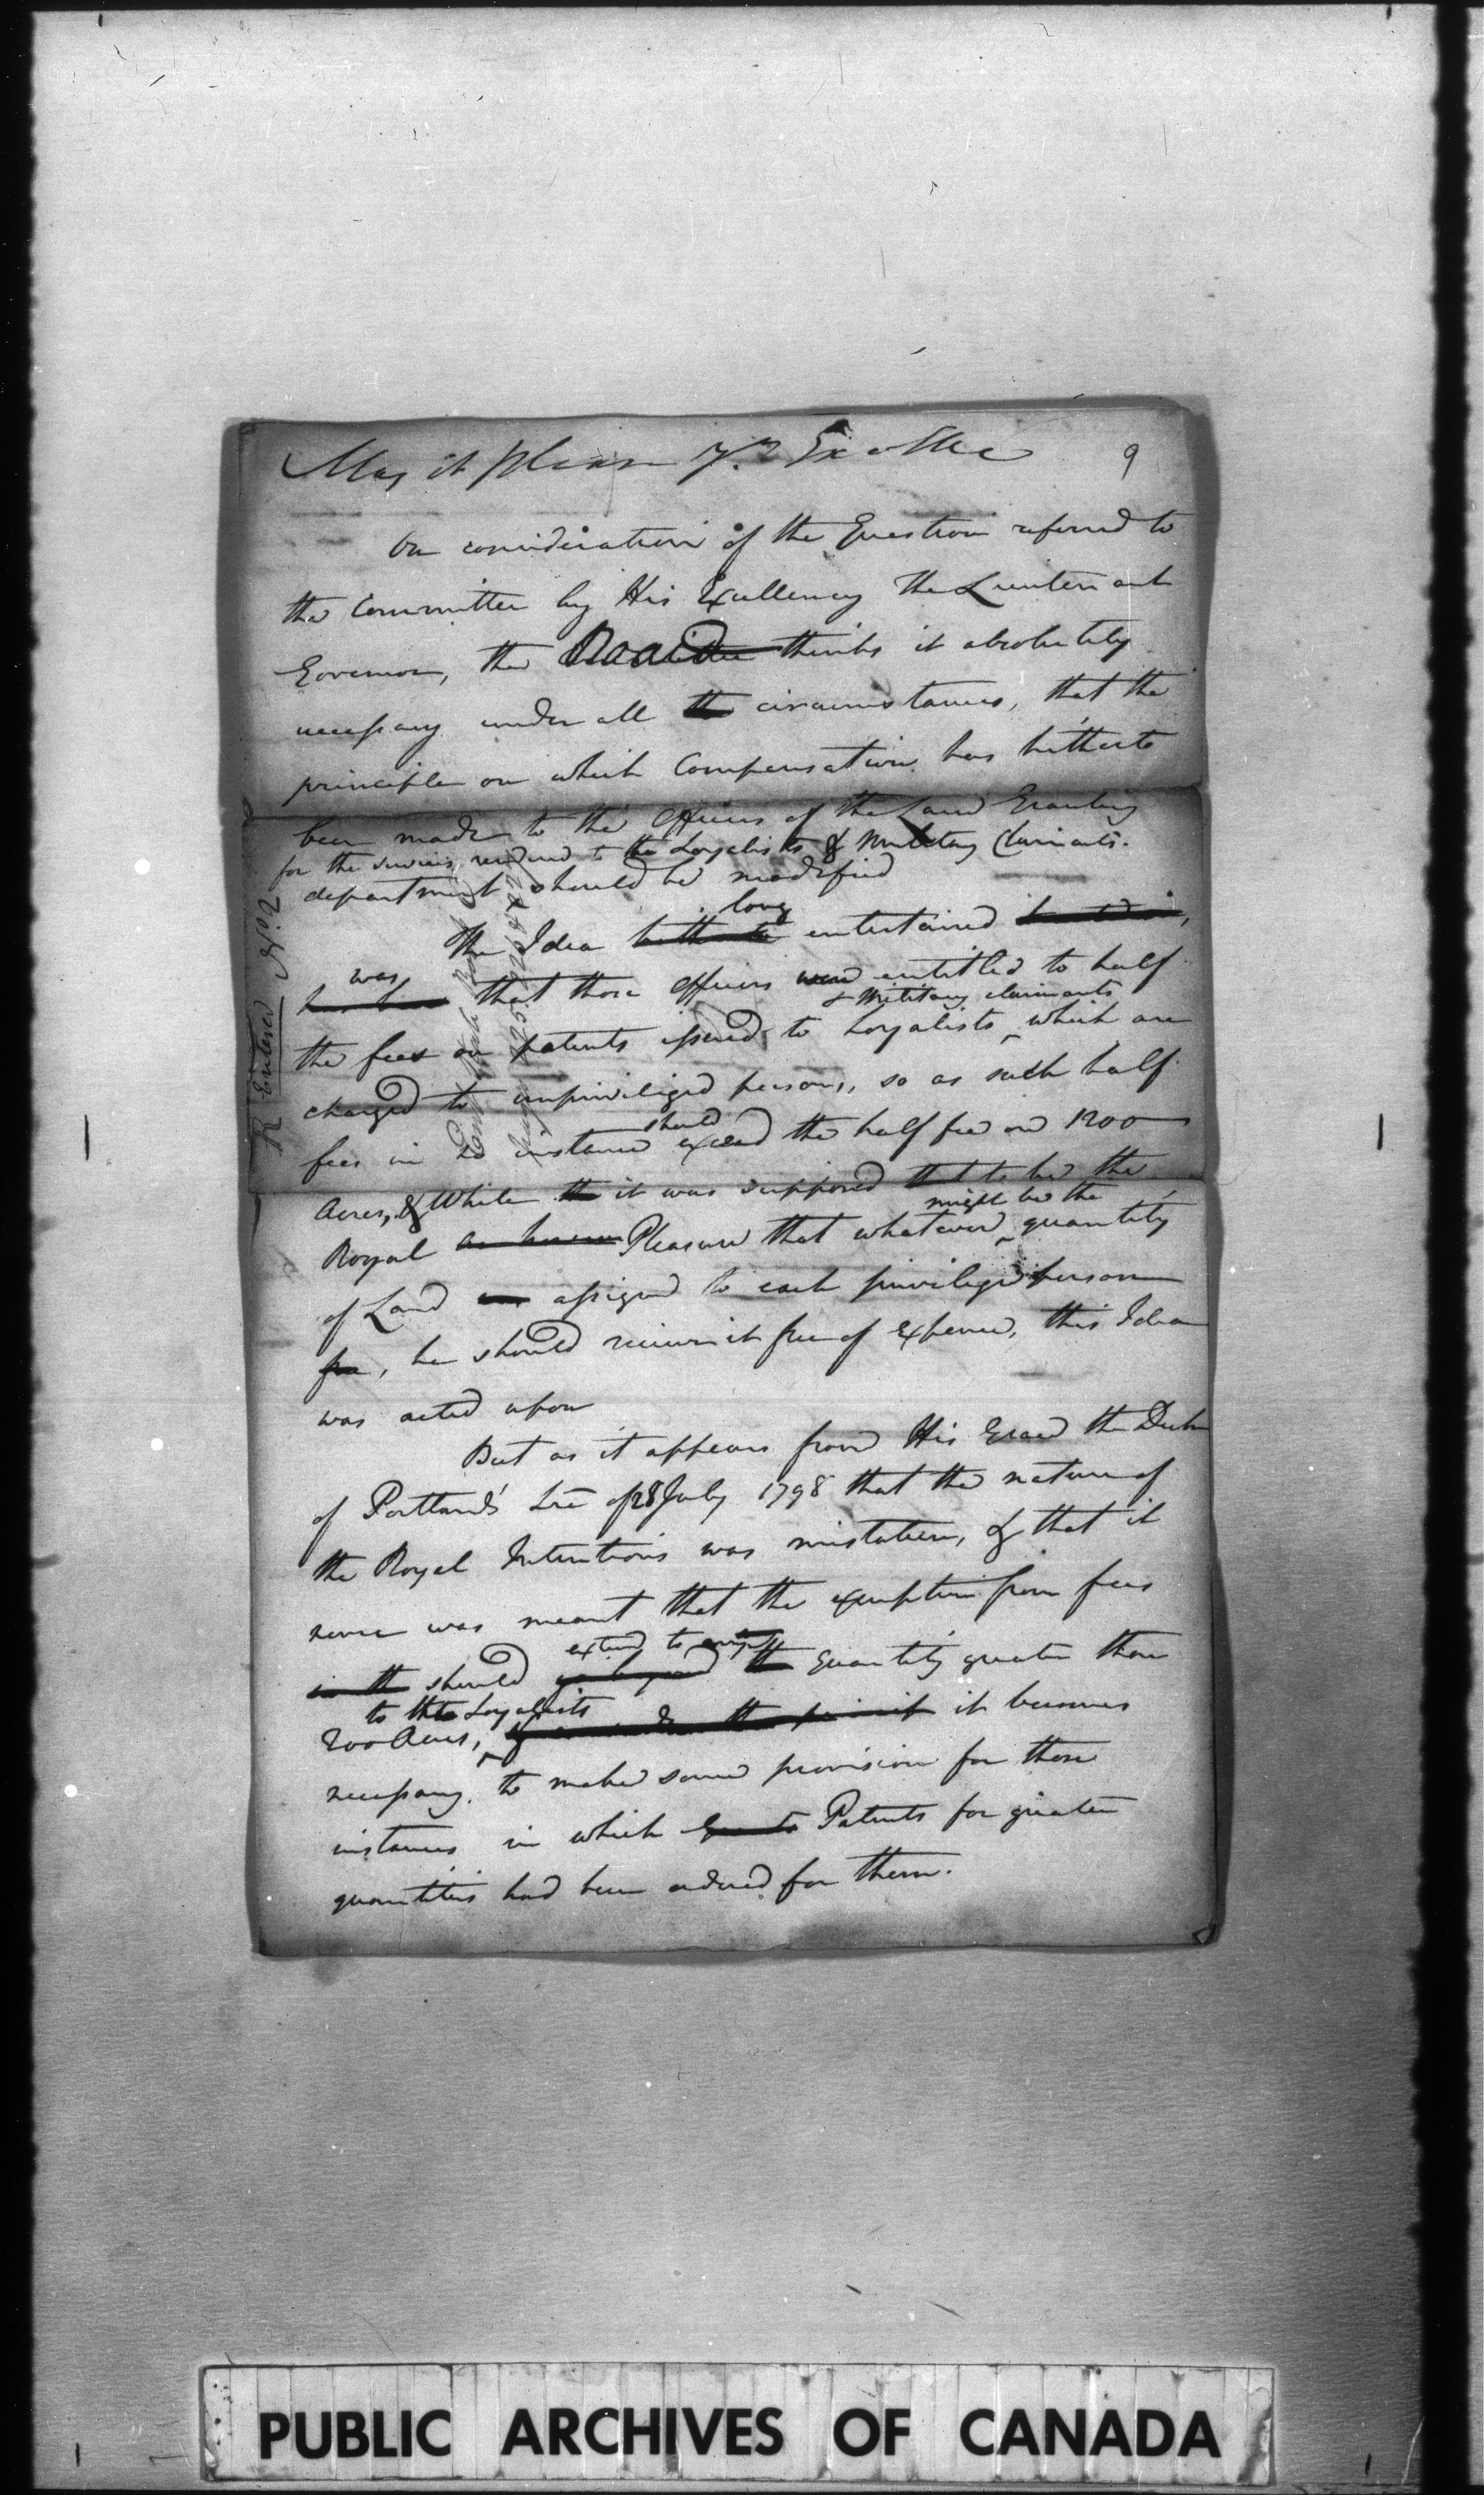 May it please Yr. Excelle
9
On consideration of the Question referred to
the Committee by His Excellency The Lieutenant
Governor, the Board thinks it absolutely
necessary under all the circumstances, that the
principle on which Compensation has hitherto
been made to the Officers of the Land Granting
for the services rendered to the Loyalists & Military Claimants.
department should be modified
long
The Idea hitherto entertained
was
has been that those Officers were entitled to half
& Military claimants
the fees on patents issued to Loyalists which are
charged to unpriviliged persons, so as such half
should
fees in no instance exceed the half fee on 1200
Acres, & While the it was supposed that to be the
might be the
Royal Pleasure that whatever quantity
of Land assigned to each priviliged person
free, he should receive it free of Expence, this Idea
was acted upon
But as it appears from His Grace the Duke
of Portland's Lre of 28 July 1798 that the nature of
the Royal Intentions was mistaken, & that it
never was meant that the exemption from fees
extend to any
in the should the quantity greater than
to the Loyalists
200 Acres, it becomes
necessary to make some provision for those
instances in which Grants Patents for greater
quantities had been ordered for them.
R Entered No. 2